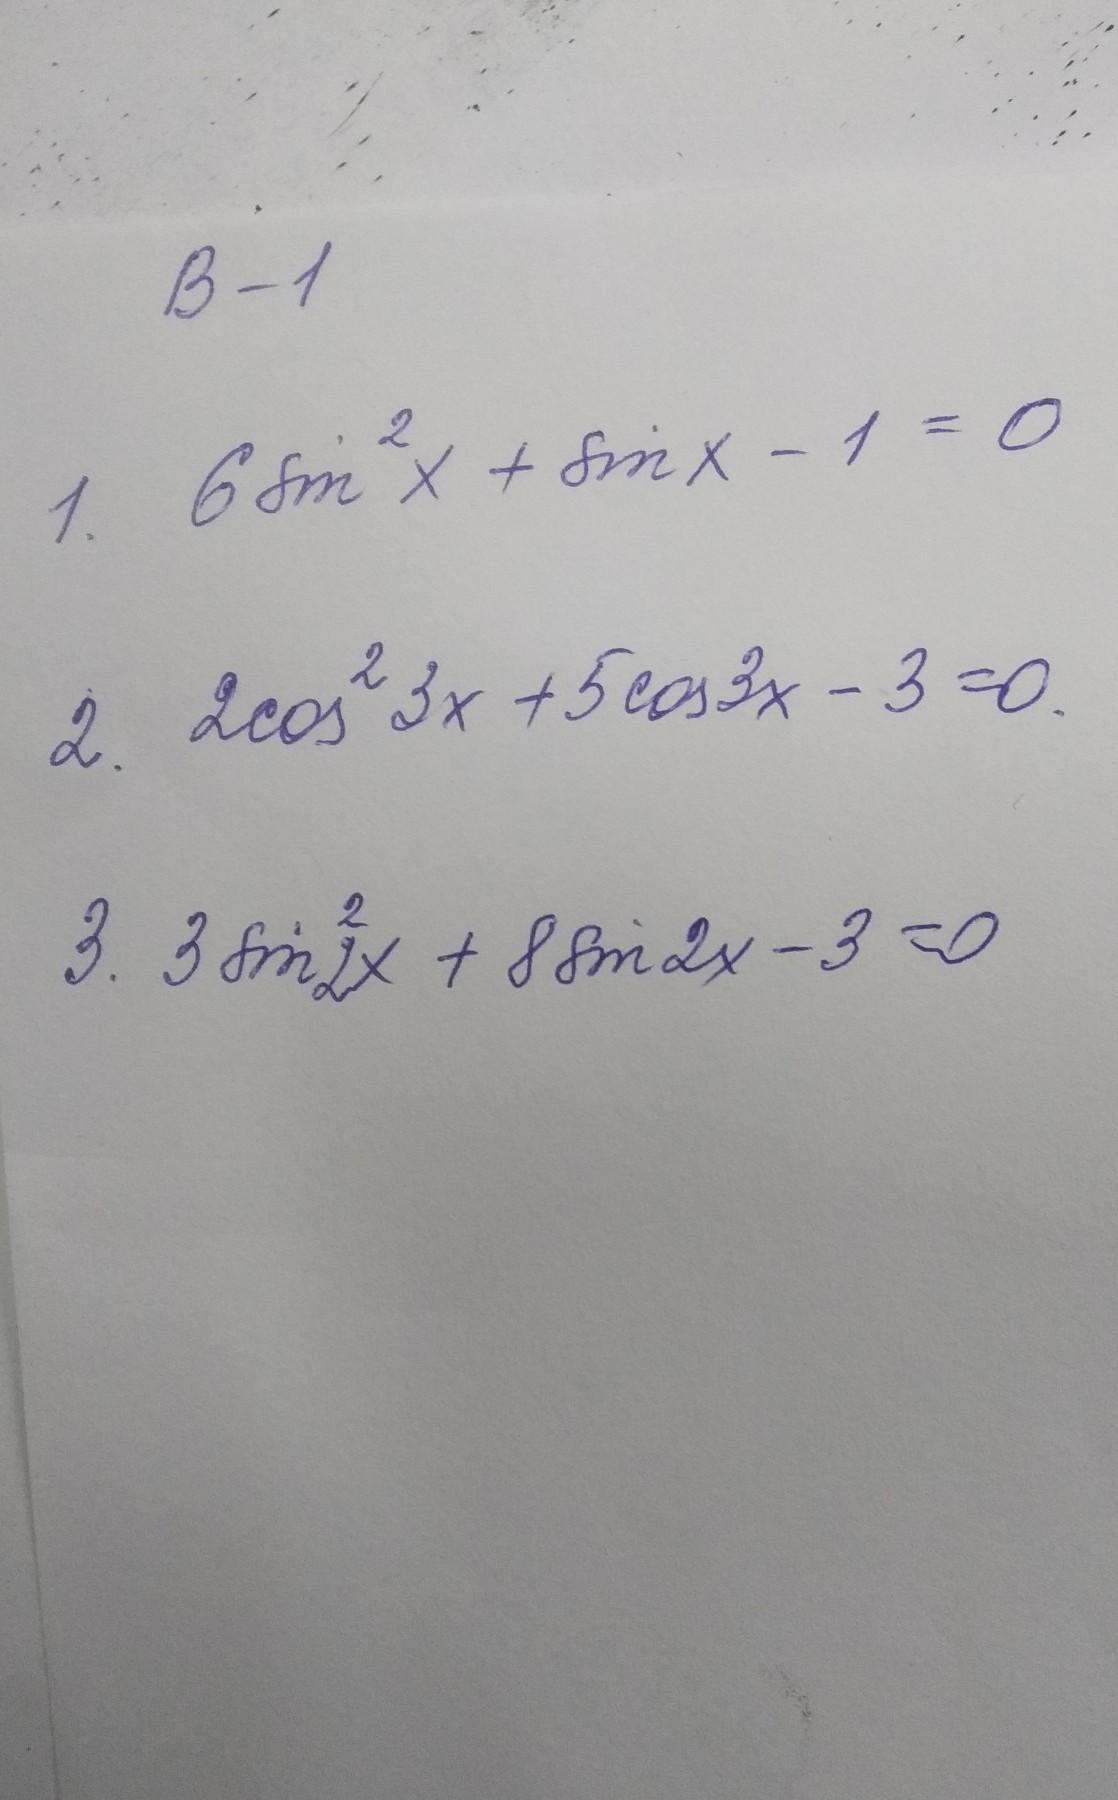 В-1
1. 6 sin²x + sin x - 1 = 0
2. 2cos²3x + 5cos3x - 3 = 0.
3. 3 sin²2x + 8 sin 2x - 3 = 0